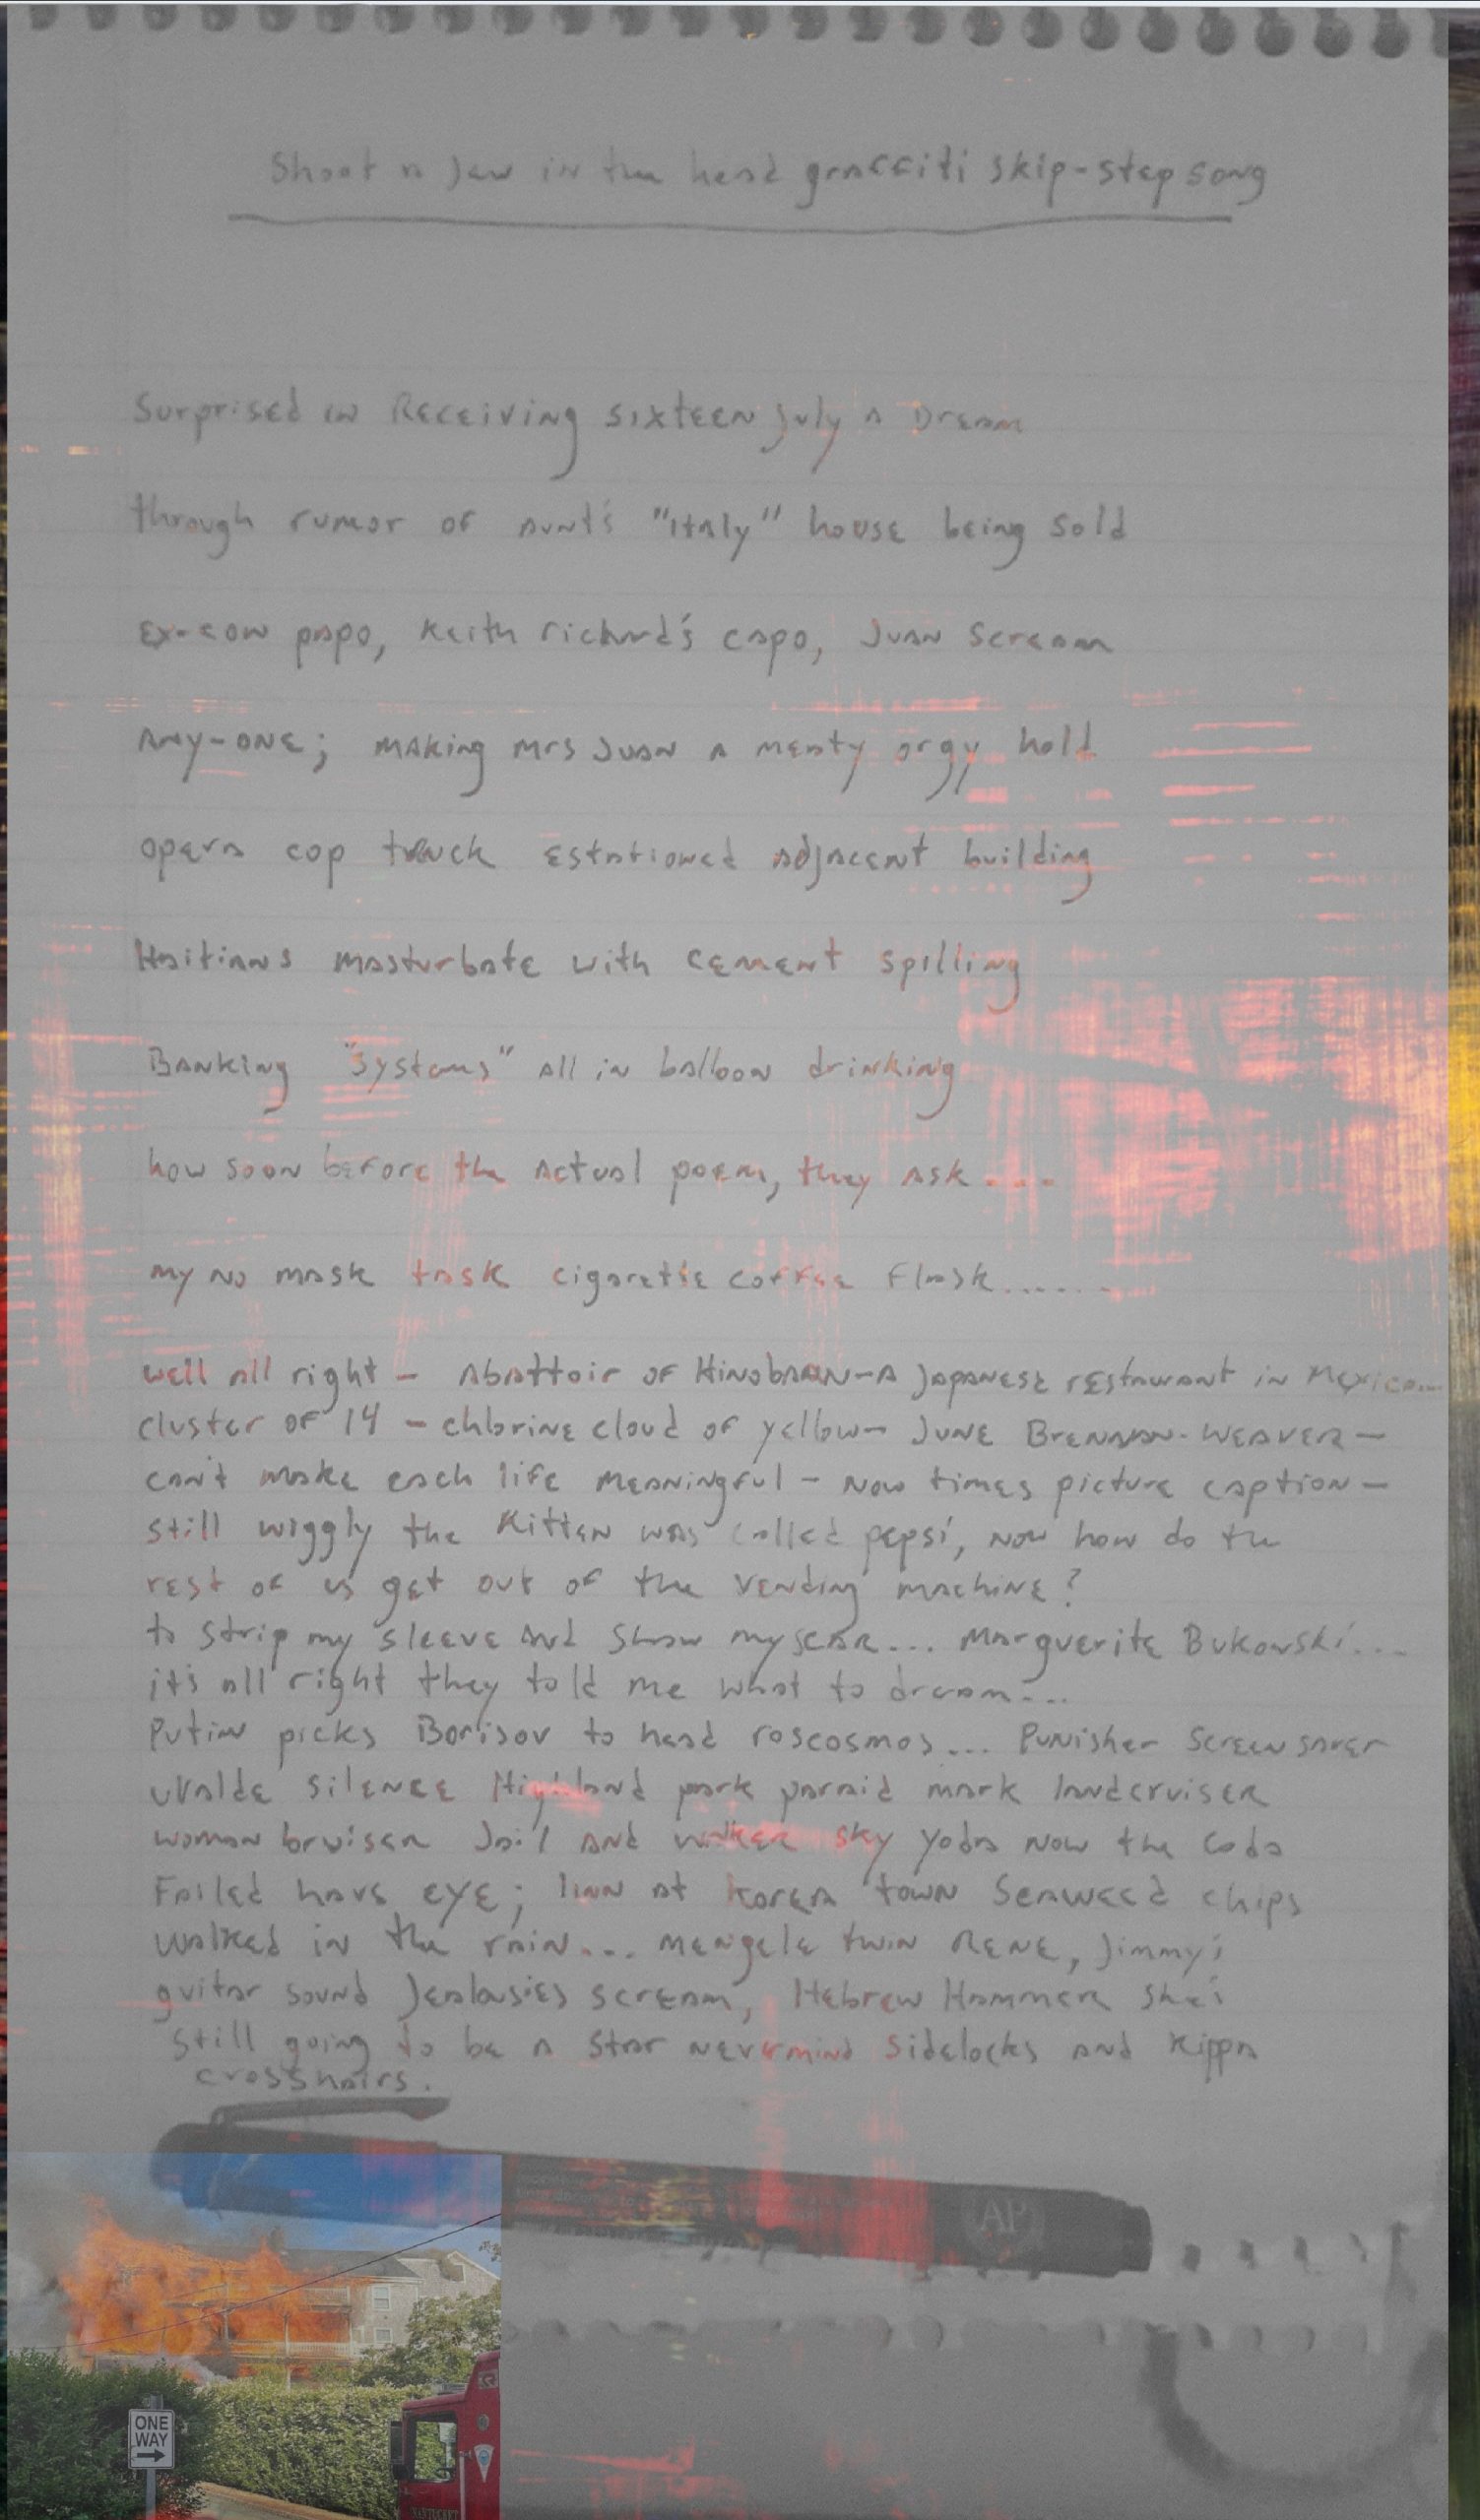 Shoot a Jew in the head graffiti skip-step song
Surprised in Receiving sixteen july a Dream
through rumor of aunt's "Italy" house being sold
Ex-con papo, Keith richard's capo, Juan Scream
Any-one; making mrs Juan a meaty orgy hold
opera cop truck Estationed adjacent building
Haitians masturbate with cement spilling
Banking "systems" all in balloon drinking
how soon before the actual poem, they ask ...
my no mask task cigarette coffee flask......
well all right - Abattoir of - A Japanese restawant in Mexico...
cluster of 14 - chlorine cloud of yellow - JUNE BRENNAN-WEAVER -
can't make each life meaningful - Now times picture caption -
still wiggly the Kitten was called pepsi, now how do the
rest of us get out of the vending machine?
to strip my sleeve and show my scar... Marguerite Bukowski...
it's all right they told me what to dream...
Putin picks Borisov to head roscosmos... Punisher Screen saver
Uvalde silence Highland park paraid mark landcruiser
woman bruiser Jail and walker sky yoda now the coda
Failed have eye; at Korea town Seaweed chips
walked in the rain... mengele twin RENE, Jimmy's
guitar sound Jealousies scream, Hebrew Hammer she's
still going to be a star nevermind sidelocks and Kippa
crosshairs.
AP
ONE
WAY
NANTUCKET